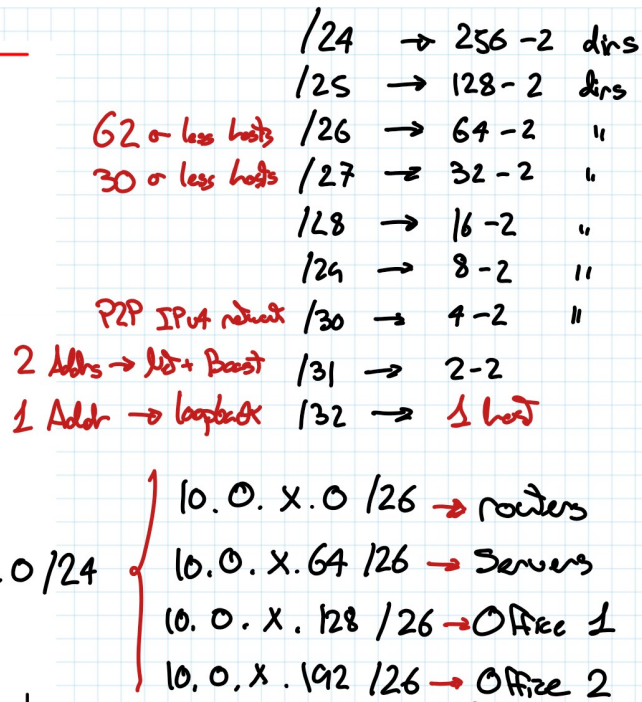 /24 → 256 - 2 dirs
/25 → 128 - 2 dirs
62 or less hosts /26 → 64 - 2 "
30 or less hosts /27 → 32 - 2 "
/28 → 16 - 2 "
/29 → 8 - 2 "
P2P IPv4 network /30 → 4 - 2 "
2 Addrs → + /31 → 2 - 2
1 Addr → loopback /32 → 1 host
10.0.X.0 /26 → routers
.0 /24 10.0.X.64 /26 → Servers
10.0.X.128 /26 → Office 1
10.0.X.192 /26 → Office 2